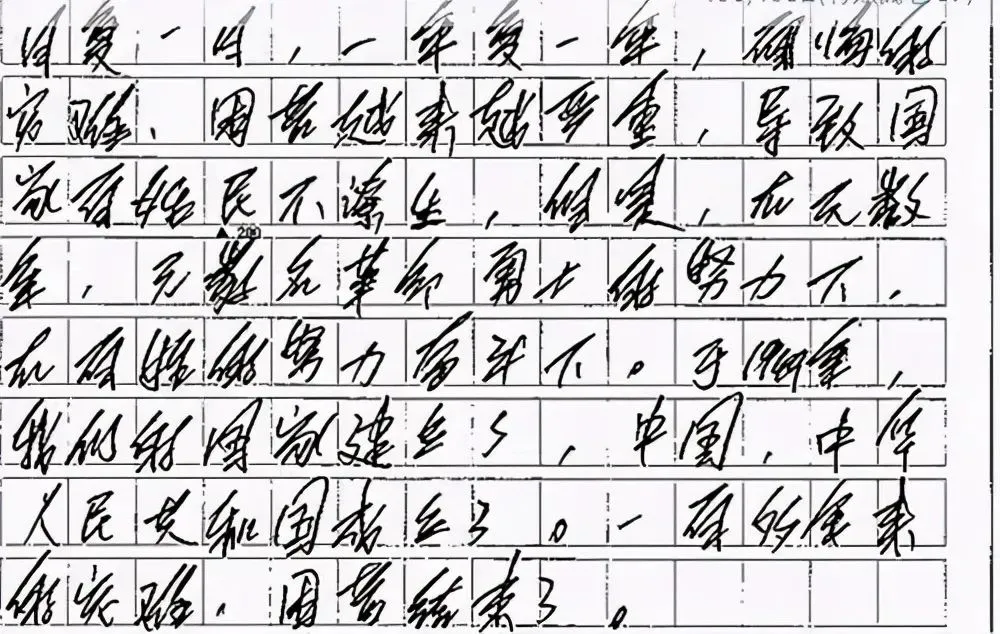 日复一日，一年复一年，的
灾难、困苦越来越严重，导致国
家百姓民不潦生，但是，在无数
▲200
年，无数名革命勇士的努力下，
在百姓的努力奋斗下。于1949年，
我们的国家建立了，中国，中华
人民共和国成立了。一百多年来
的灾难、困苦结束了。